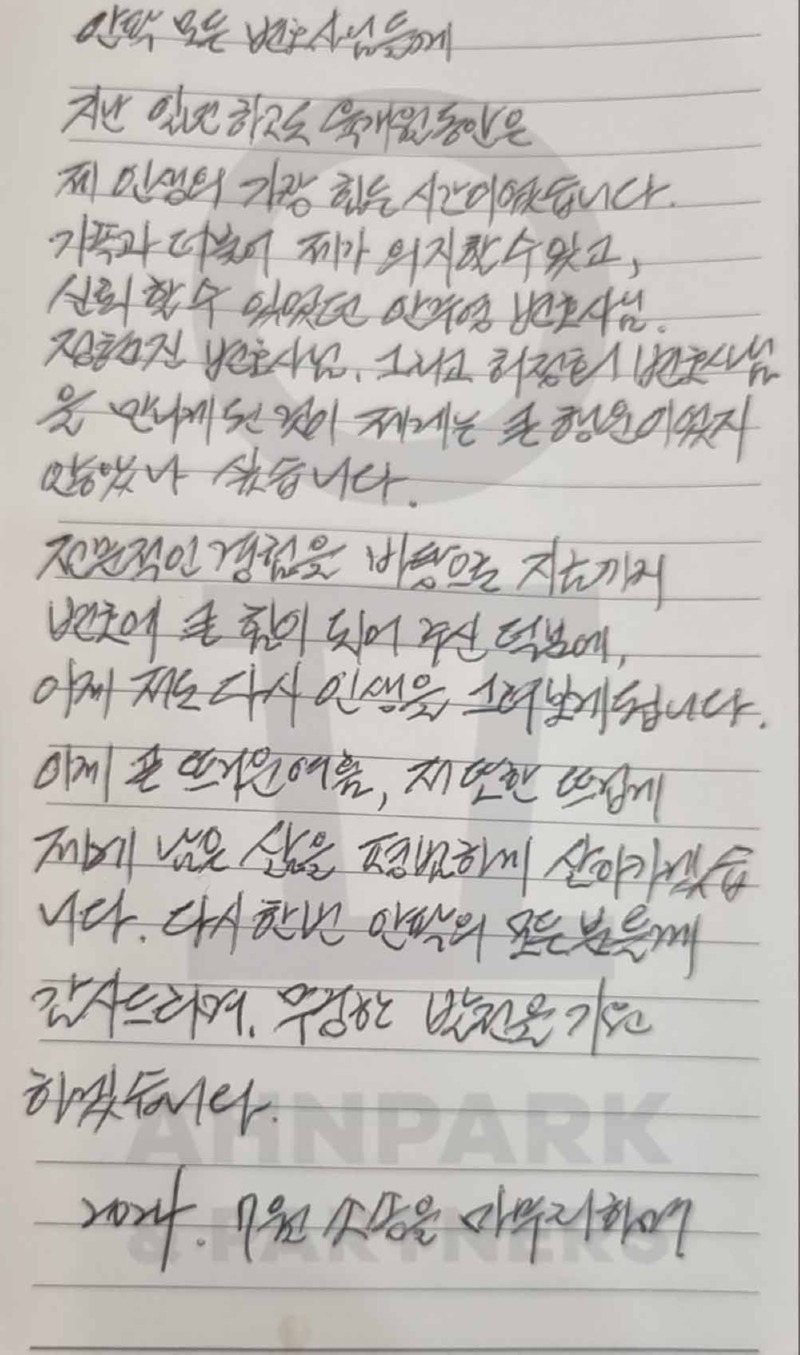 안팍 모든 변호사님들께
지난 일년하고도 육개월동안은
제 인생의 가장 힘든 시간이었습니다.
가족과 더불어 제가 의지할 수 있고,
신뢰 할 수 있었던 안주영 변호사님.
변호사님. 그리고 변호사님
을 만나게 된 것이 제게는 큰 행운이었지
않았나 싶습니다.
전문적인 경험을 바탕으로 지금까지
변호에 큰 힘이 되어 주신 덕분에,
이제 저도 다시 인생을 그려보게 됩니다.
이제 곧 뜨거운 여름, 저 또한 뜨겁게
제게 남은 삶을 평범하게 살아가겠습
니다. 다시 한번 안팍의 모든 분들께
감사드리며, 무궁한 발전을 기원
하겠습니다.
2024. 7월 소송을 마무리하며
AHNPARK
& PARTNERS